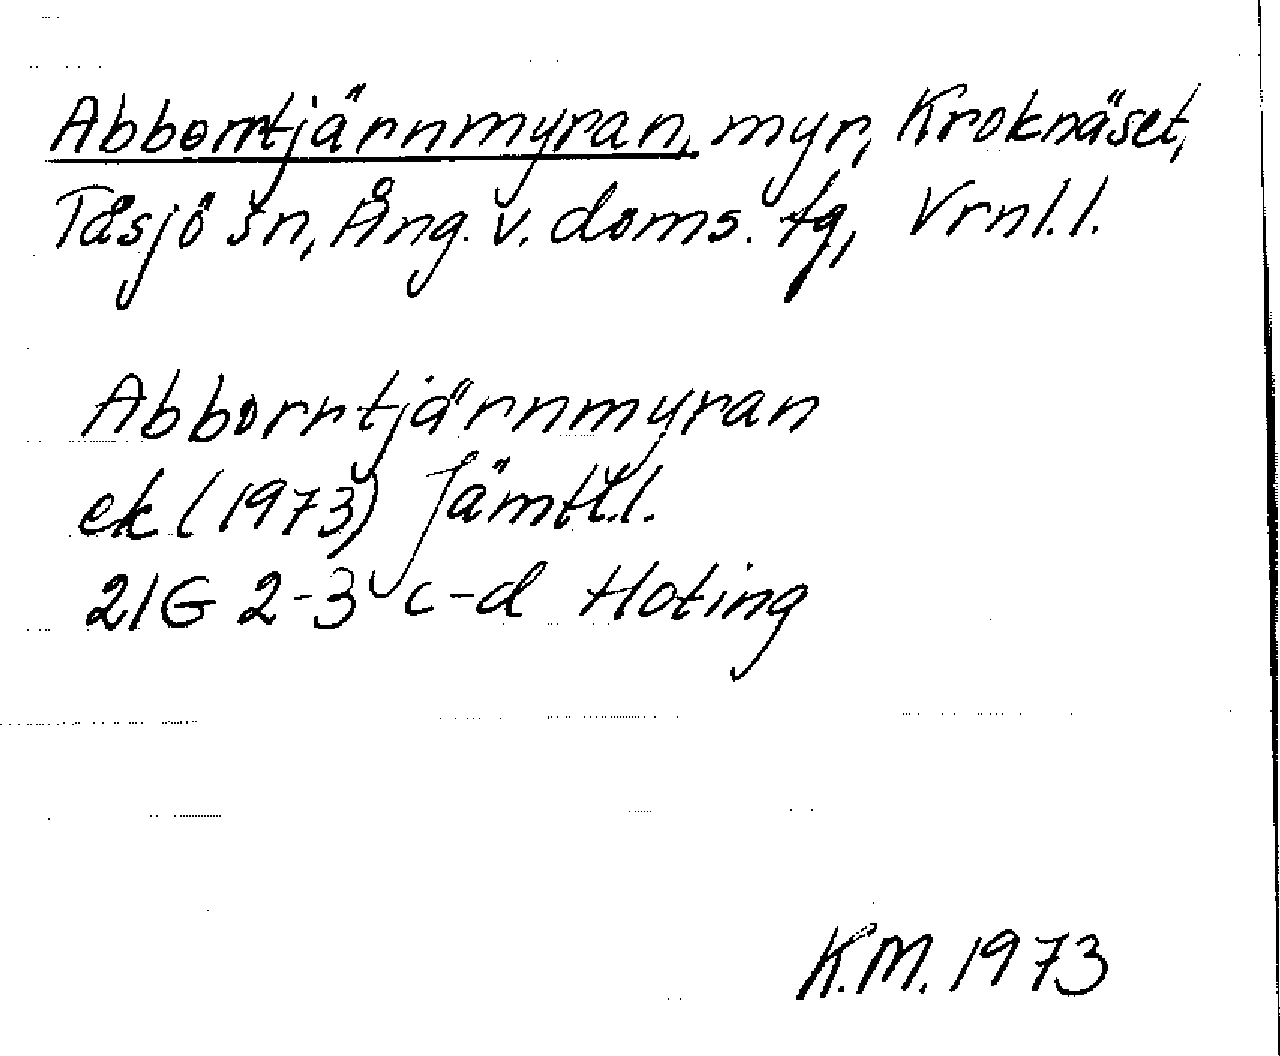 Abborrtjärnmyran, myr, Kroknäset,
Tåsjö sn, Ång. v. doms. tg, Vrnl.l.
Abborrtjärnmyran
ek (1973) Jämtl.l.
21G 2-3 c-d Hoting
K.M. 1973